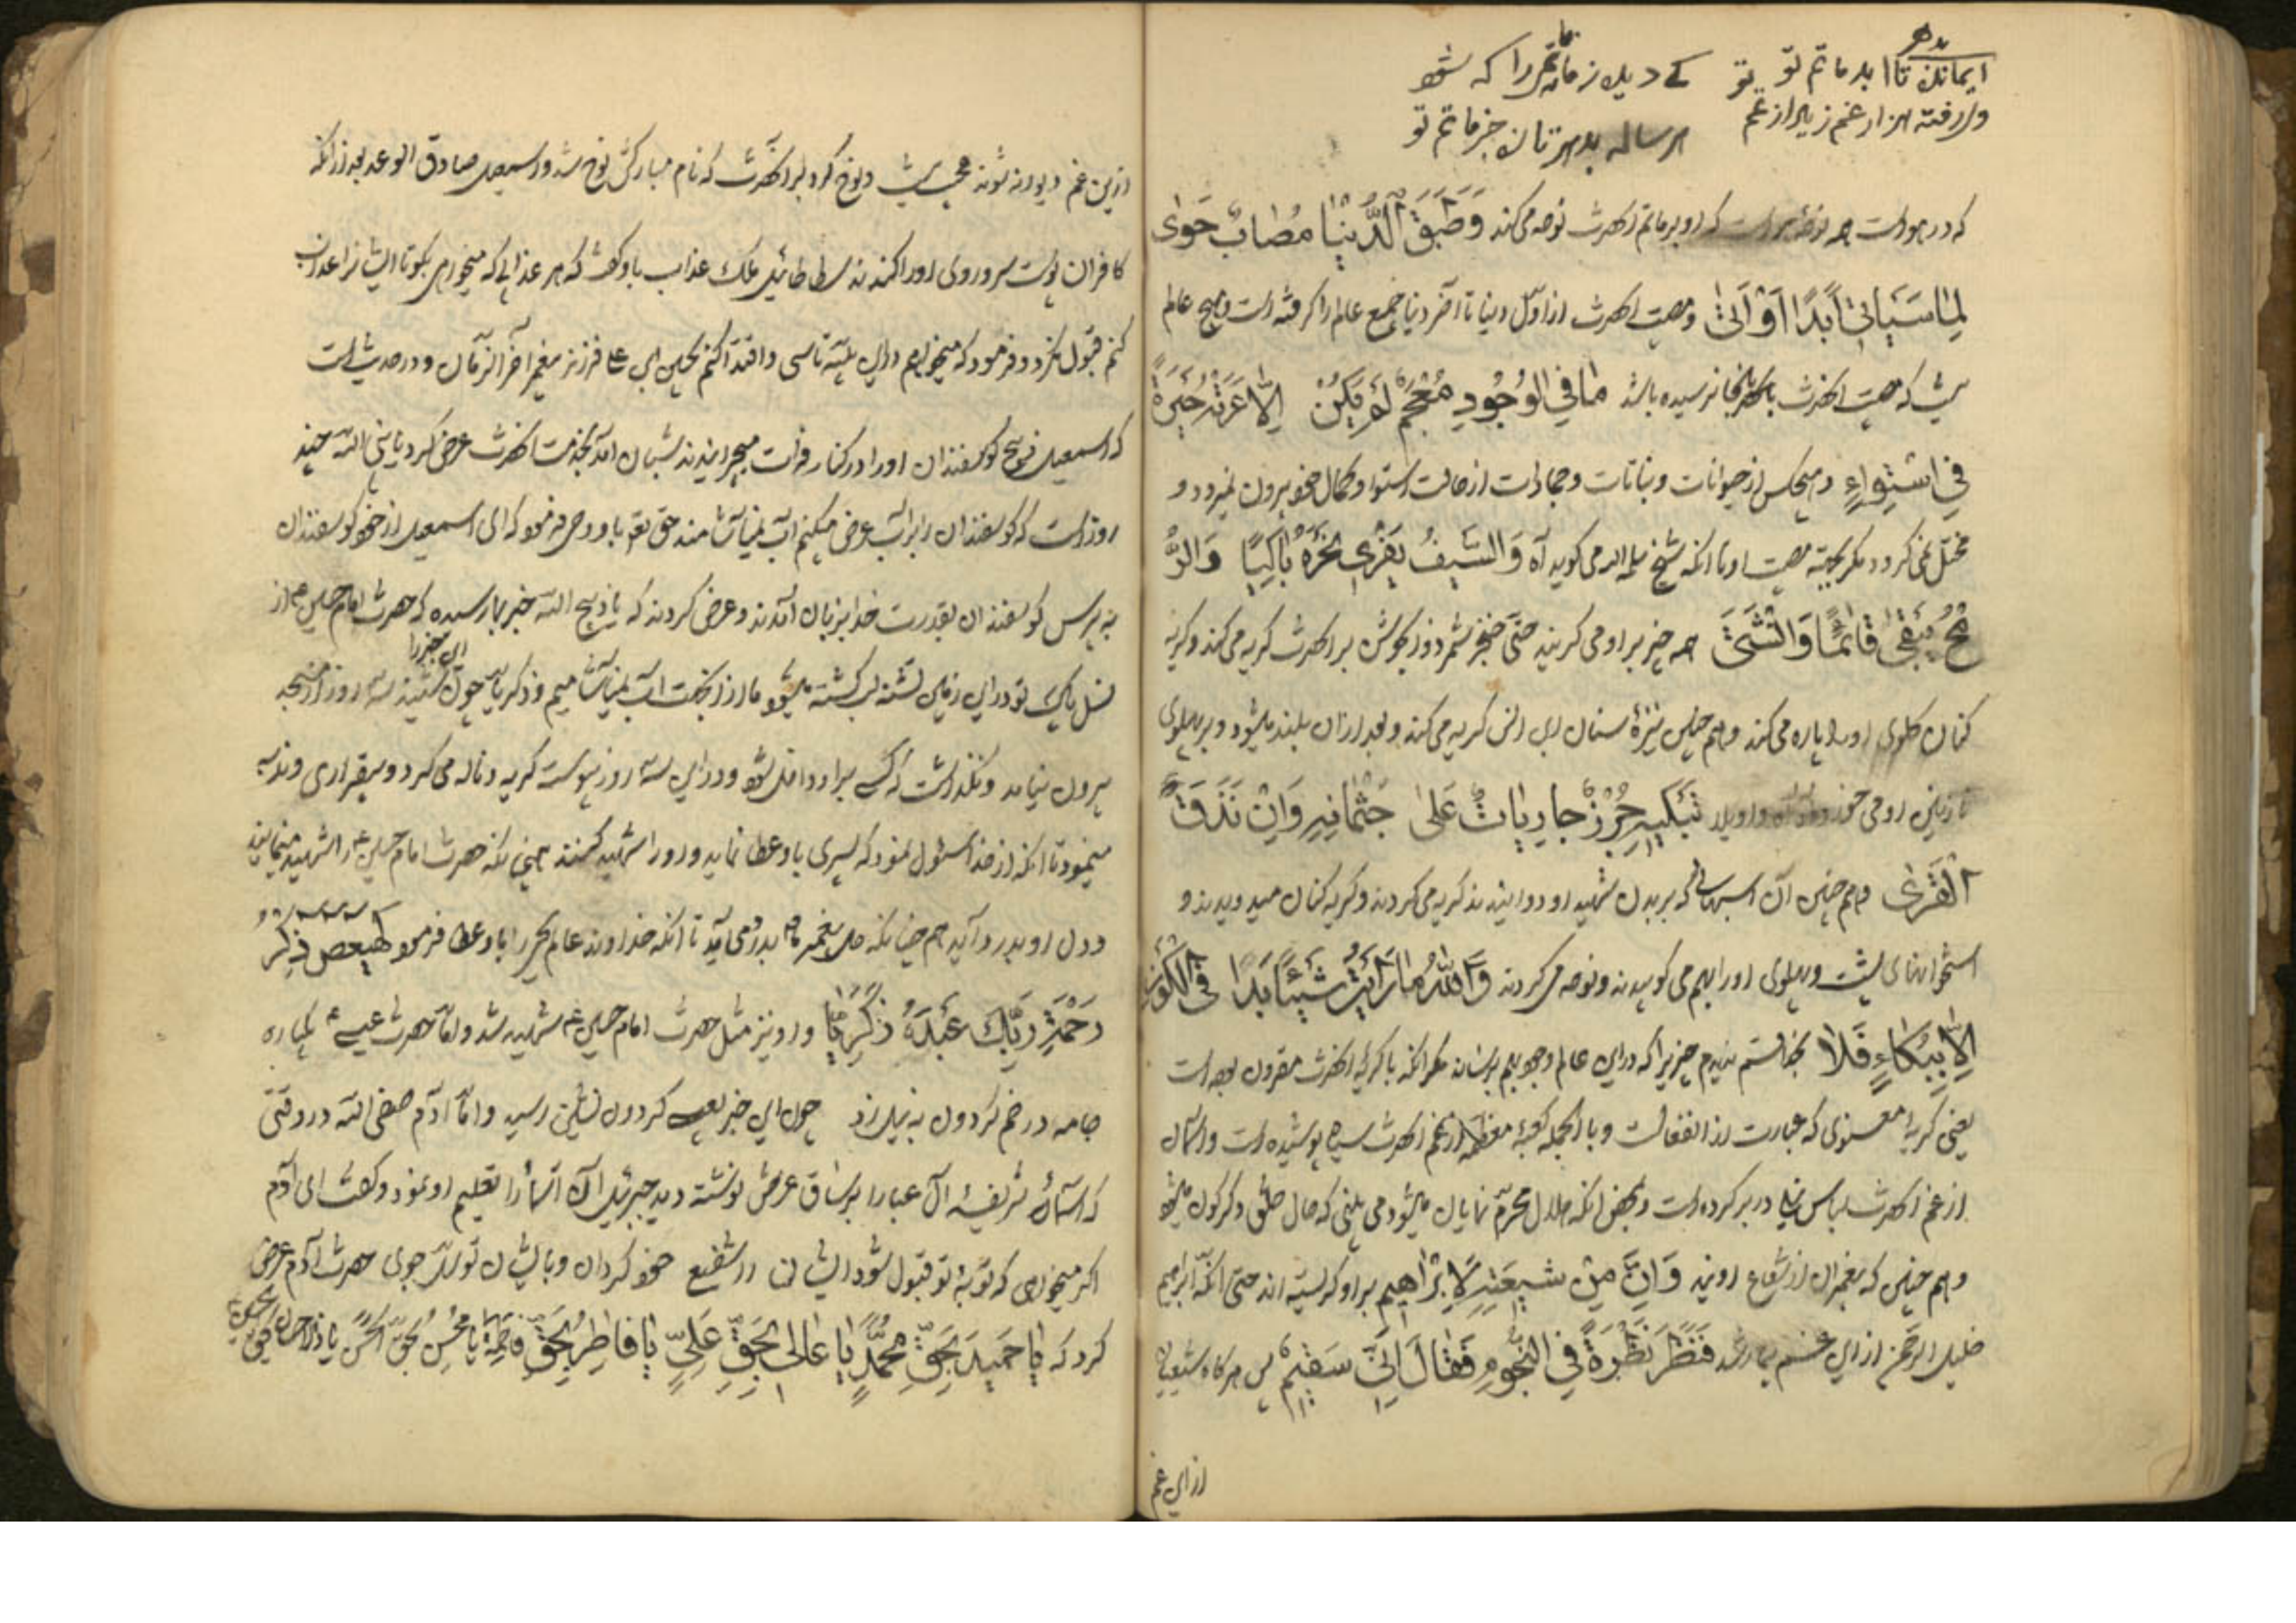 تا ابد ماتم تو
هر ساله بدهر تان جز ماتم تو
که در هواست همه نوحه است که او بر ماتم آنحضرت نوحه می‌کند وَطَبَّقَ الدُّنْیٰا مُصٰابٌ حَویٰ
لِمٰا سَیَاتیٖ اَبَدًا اَوْ اَتیٰ و مصیبت آنحضرت از اوّل دنیا تا آخر دنیا جمیع عالم را گرفته است و هیچ عالم
نیست که مصیبت آنحضرت بآنجا نرسیده باشد مٰا فِی الْوُجُودِ مُعْجَمٌ لَمْ یَکُنْ اِلّٰا عَرَتْهُ حَیْرَةٌ
فِی اسْتِوٰاءٍ و هیچکس از حیوانات و نباتات و جمادات از حالت استوا و کمال خود بیرون نمیرود و
مختل نمی گردد مگر بجهة مصیبت او تا آنکه شیخ سلمه الله می گوید آه وَالسَّیْفُ یَفْرٖی نَحْرَهُ بٰاکِیًا وَالرُّ
مْحُ یَبْقیٰ قٰائِمًا وَانْثَنیٰ همه چیز بر او می گریند حتّی خنجر شمر دون بر آنحضرت گریه می‌کند و گریه
کنان گلوی او را پاره می کند و هم چنین نیزهٔ سنان ابن انس گریه می کند و بعد از آن بلند میشود و بر پهلوی
نازنین او می خورد واویلا تَبْکیٖهِ جُرْدٌ جٰارِیٰاتٌ عَلیٰ جُثْمٰانِهِ وَاِنْ تَدُقَّ
الْقَریٰ و هم چنین آن اسبهائی که بر بدن شهید او دوانیدند گریه می کردند و گریه کنان میدویدند و
استخوانهای پشت و پهلوی او را بهم می کوبیدند و نوحه می کردند وَاللّٰهِ مٰا رَاَیْتُ شَیْئًا بَدٰا فِی الْکَوْنِ
اِلّٰا بِبُکٰاءٍ قَلٰا بخدا قسم ندیدم چیزیرا که در این عالم وجود بهم رساند مگر آنکه با گریه آنحضرت مقرون بوده است
یعنی گریهٔ معنوی که عبارت از انفعالست و بالجمله کعبهٔ معظمه از غم آنحضرت سیاه پوشیده است و آسمان
از غم آنحضرت لباس نیلی در بر کرده است و بمحض آنکه هلال محرّم نمایان میشود می بینی که حال خلق دگرگون میشود
و هم چنین که پیغمبران از شعاع اویند وَ اِنَّ مِنْ شیٖعَتِهِ لَاِبْرٰاهیٖم بر او گریسته اند حتّی آنکه ابراهیم
خلیل الرّحمن از این غم بیمار شد فَنَظَرَ نَظْرَةً فِی النُّجُومِ فَقٰالَ اِنّیٖ سَقیٖمٌ پس هرگاه شیعیان
از این غم
ازین غم دیوانه شوند عجب نیست و نوح گرد بر آنحضرت که نام مبارکش نوح شد و اسمعیل صادق الوعد بعد از آنکه
کافران پوست سر و روی او را کندند سطاطائیل ملک عذاب باو گفت که هر عذابی که میخواهی بگو تا ایشانرا عذاب
کنم قبول نکرد و فرمود که میخواهم در این بلیّه تاسی و اقتدا کنم بحسین ابن علی فرزند پیغمبر آخر الزمان و در حدیث است
که اسمعیل ذبیح گوسفندان او را در کنار فرات میچرانیدند شبان آمد بخدمت آنحضرت عرض کرد یا نبی الله چند
روز است که گوسفندان را بر آب عرض میکنم آب نمی‌آشامند حق تعالی باو وحی فرمود که ای اسمعیل از خود گوسفندان
بپرس گوسفندان بقدرت خدا بزبان آمدند و عرض کردند که یا ذبیح الله خبر بما رسیده که حضرت امام حسین ع از
نسل پاک تو در این زمین تشنه لب کشته میشود ما از آنجهت آب نمی‌آشامیم و زکریّا چون این خبر را شنید سه روز از مسجد
بیرون نیامد و نگذاشت که کسی بر او داخل شود و در این سه روز پیوسته گریه و ناله می کرد و بیقراری و ندبه
مینمود تا آنکه از خدا مسئول نمود که پسری باو عطا نماید و او را شهید کنند همچنانکه حضرت امام حسین ع را شهید مینمایند
و دل او بدرد آید هم چنانکه دل پیغمبر ما بدرد می آید تا آنکه خداوند عالم یحیی را باو عطا فرمود کهیعص ذِکْرُ
رَحْمَةِ رَبِّکَ عَبْدَهُ زَکَرِیّٰا و او نیز مثل حضرت امام حسین ع شهید شد و امّا حضرت عیسی ع یکباره
جامه در خم گردون به نیل زد چون این خبر بعیسی گردون نشین رسید و امّا آدم صفی الله در وقتی
که اسماء شریفهٔ آل عبا را بر ساق عرش نوشته دید جبرئیل آن اسماء را تعلیم او نمود و گفت ای آدم
اگر میخواهی که توبهٔ تو قبول شود ایشان را شفیع خود گردان و بایشان توسل جوی حضرت آدم عرض
کرد که یٰا حَمیٖدُ بِحَقِّ مُحَمَّدٍ یٰا عٰالیٖ بِحَقِّ عَلِیٍّ یٰا فٰاطِرُ بِحَقِّ فٰاطِمَةَ یٰا مُحْسِنُ بِحَقِّ الْحَسَنِ یٰا ذَا الْاِحْسٰانِ بِحَقِّ الْحُسَیْنِ